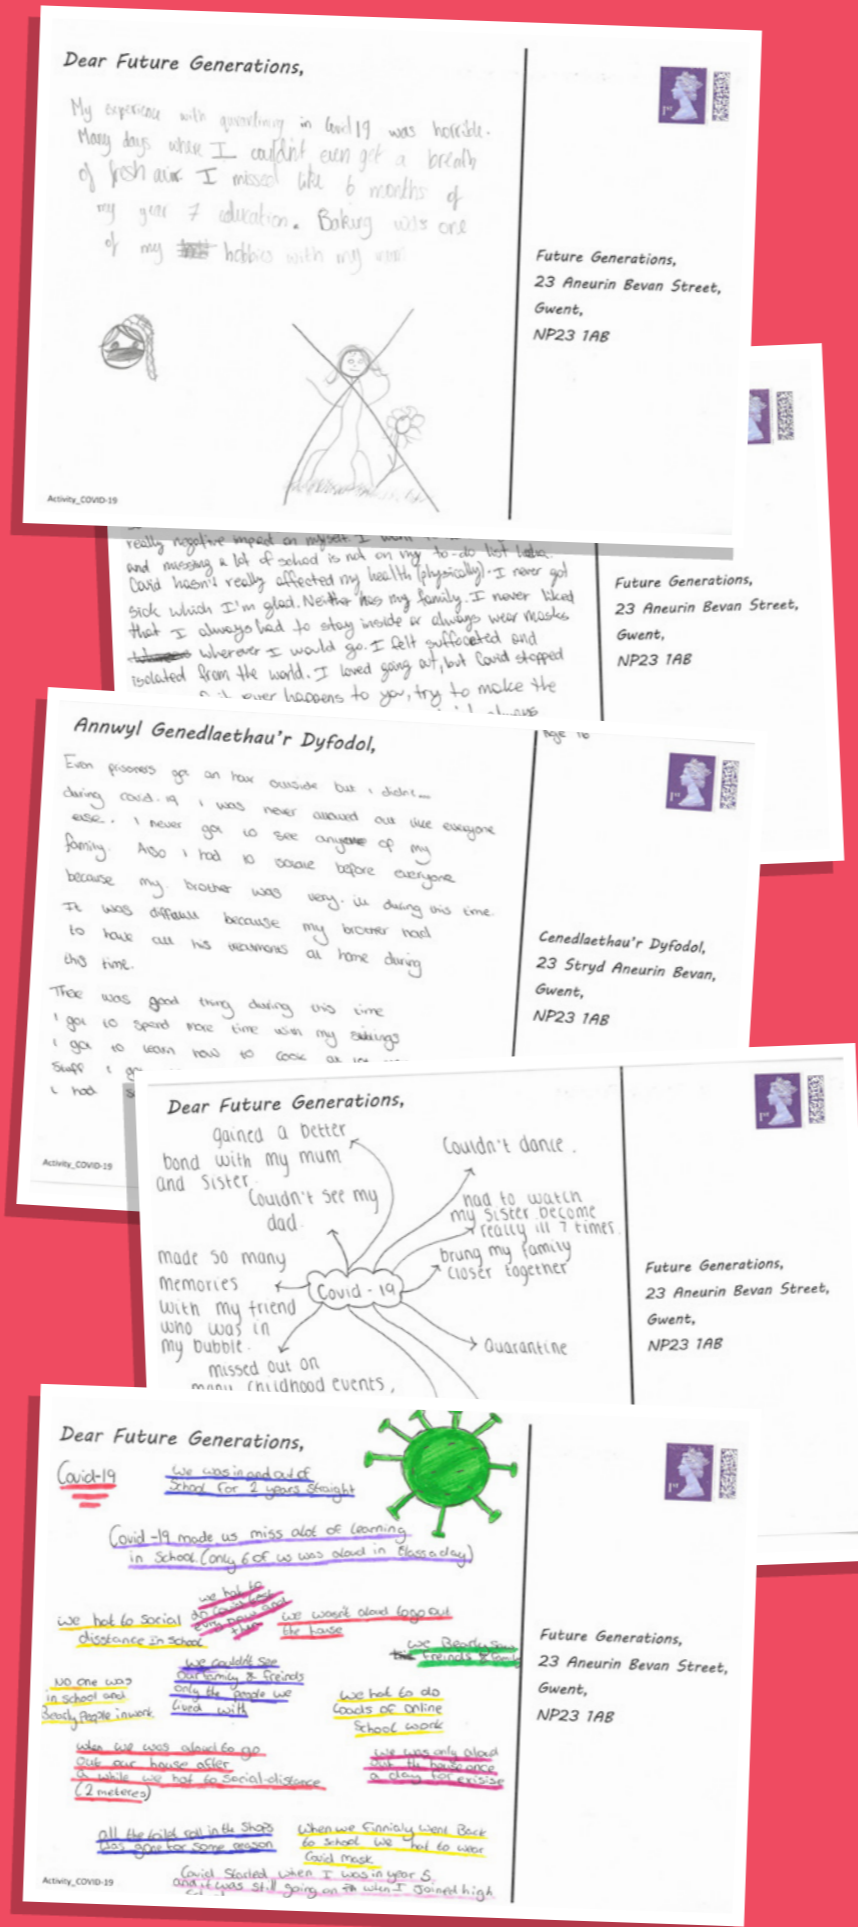 Dear Future Generations,
My experience with quarantining in Covid 19 was horrible.
Many days where I couldn't even get a breath
of fresh air I missed like 6 months of
my year 7 education. Baking was one
of my hobbies with my
1st
Future Generations,
23 Aneurin Bevan Street,
Gwent,
NP23 1AB
Activity_COVID-19
really negative impact on myself. I want
and missing a lot of school is not on my to-do list
Covid hasn't really affected my health (physically). I never got
sick which I'm glad. Neither has my family. I never liked
that I always had to stay inside or always wear masks
wherever I would go. I felt suffocated and
isolated from the world. I loved going out, but Covid stopped
ever happens to you, try to make the
always
Future Generations,
23 Aneurin Bevan Street,
Gwent,
NP23 1AB
Annwyl Genedlaethau'r Dyfodol,
Even prisoners got an hour outside but i didnt...
during covid-19 i was never allowed out like everyone
else. I never got to see anyone of my
family. Also i had to isolate before everyone
because my brother was very ill during this time.
It was difficult because my brother had
to have all his treatments at home during
this time.
There was good thing during this time
I got to spend more time with my siblings
I got to learn how to cook
Stuff I
i had
Age 16
1st
Cenedlaethau'r Dyfodol,
23 Stryd Aneurin Bevan,
Gwent,
NP23 1AB
Activity_COVID-19
Dear Future Generations,
gained a better
bond with my mum
and sister
Couldn't see my
dad.
made so many
memories
with my friend
who was in
my bubble.
missed out on
many childhood events,
Covid-19
Couldn't dance.
had to watch
my sister become
really ill 7 times.
brung my family
closer together
Quarantine
1st
Future Generations,
23 Aneurin Bevan Street,
Gwent,
NP23 1AB
Dear Future Generations,
Covid-19
we was in and out of
School for 2 years straight
Covid-19 made us miss alot of learning
in School. (only 6 of us was aloud in class a day)
we hat to social
disstance in School
we hat to
do covid test
every now and
then
we wasn't aloud to go out
the house
we Bearly saw
freinds & family
No one was
in school and
Bearly People in work
we couldn't see
our family & freinds
only the people we
lived with
we hat to do
Loads of online
School work
when we was aloud to go
out our house after
a while we hat to social-distance
(2 meteres)
we was only aloud
out th house once
a day for exisise
all the toilet roll in the shops
was gone for some reason
When we Finnialy went Back
to school we hat to wear
Covid mask
Covid Started when I was in year 5
and it was still going on when I Joined high
1st
Future Generations,
23 Aneurin Bevan Street,
Gwent,
NP23 1AB
Activity_COVID-19